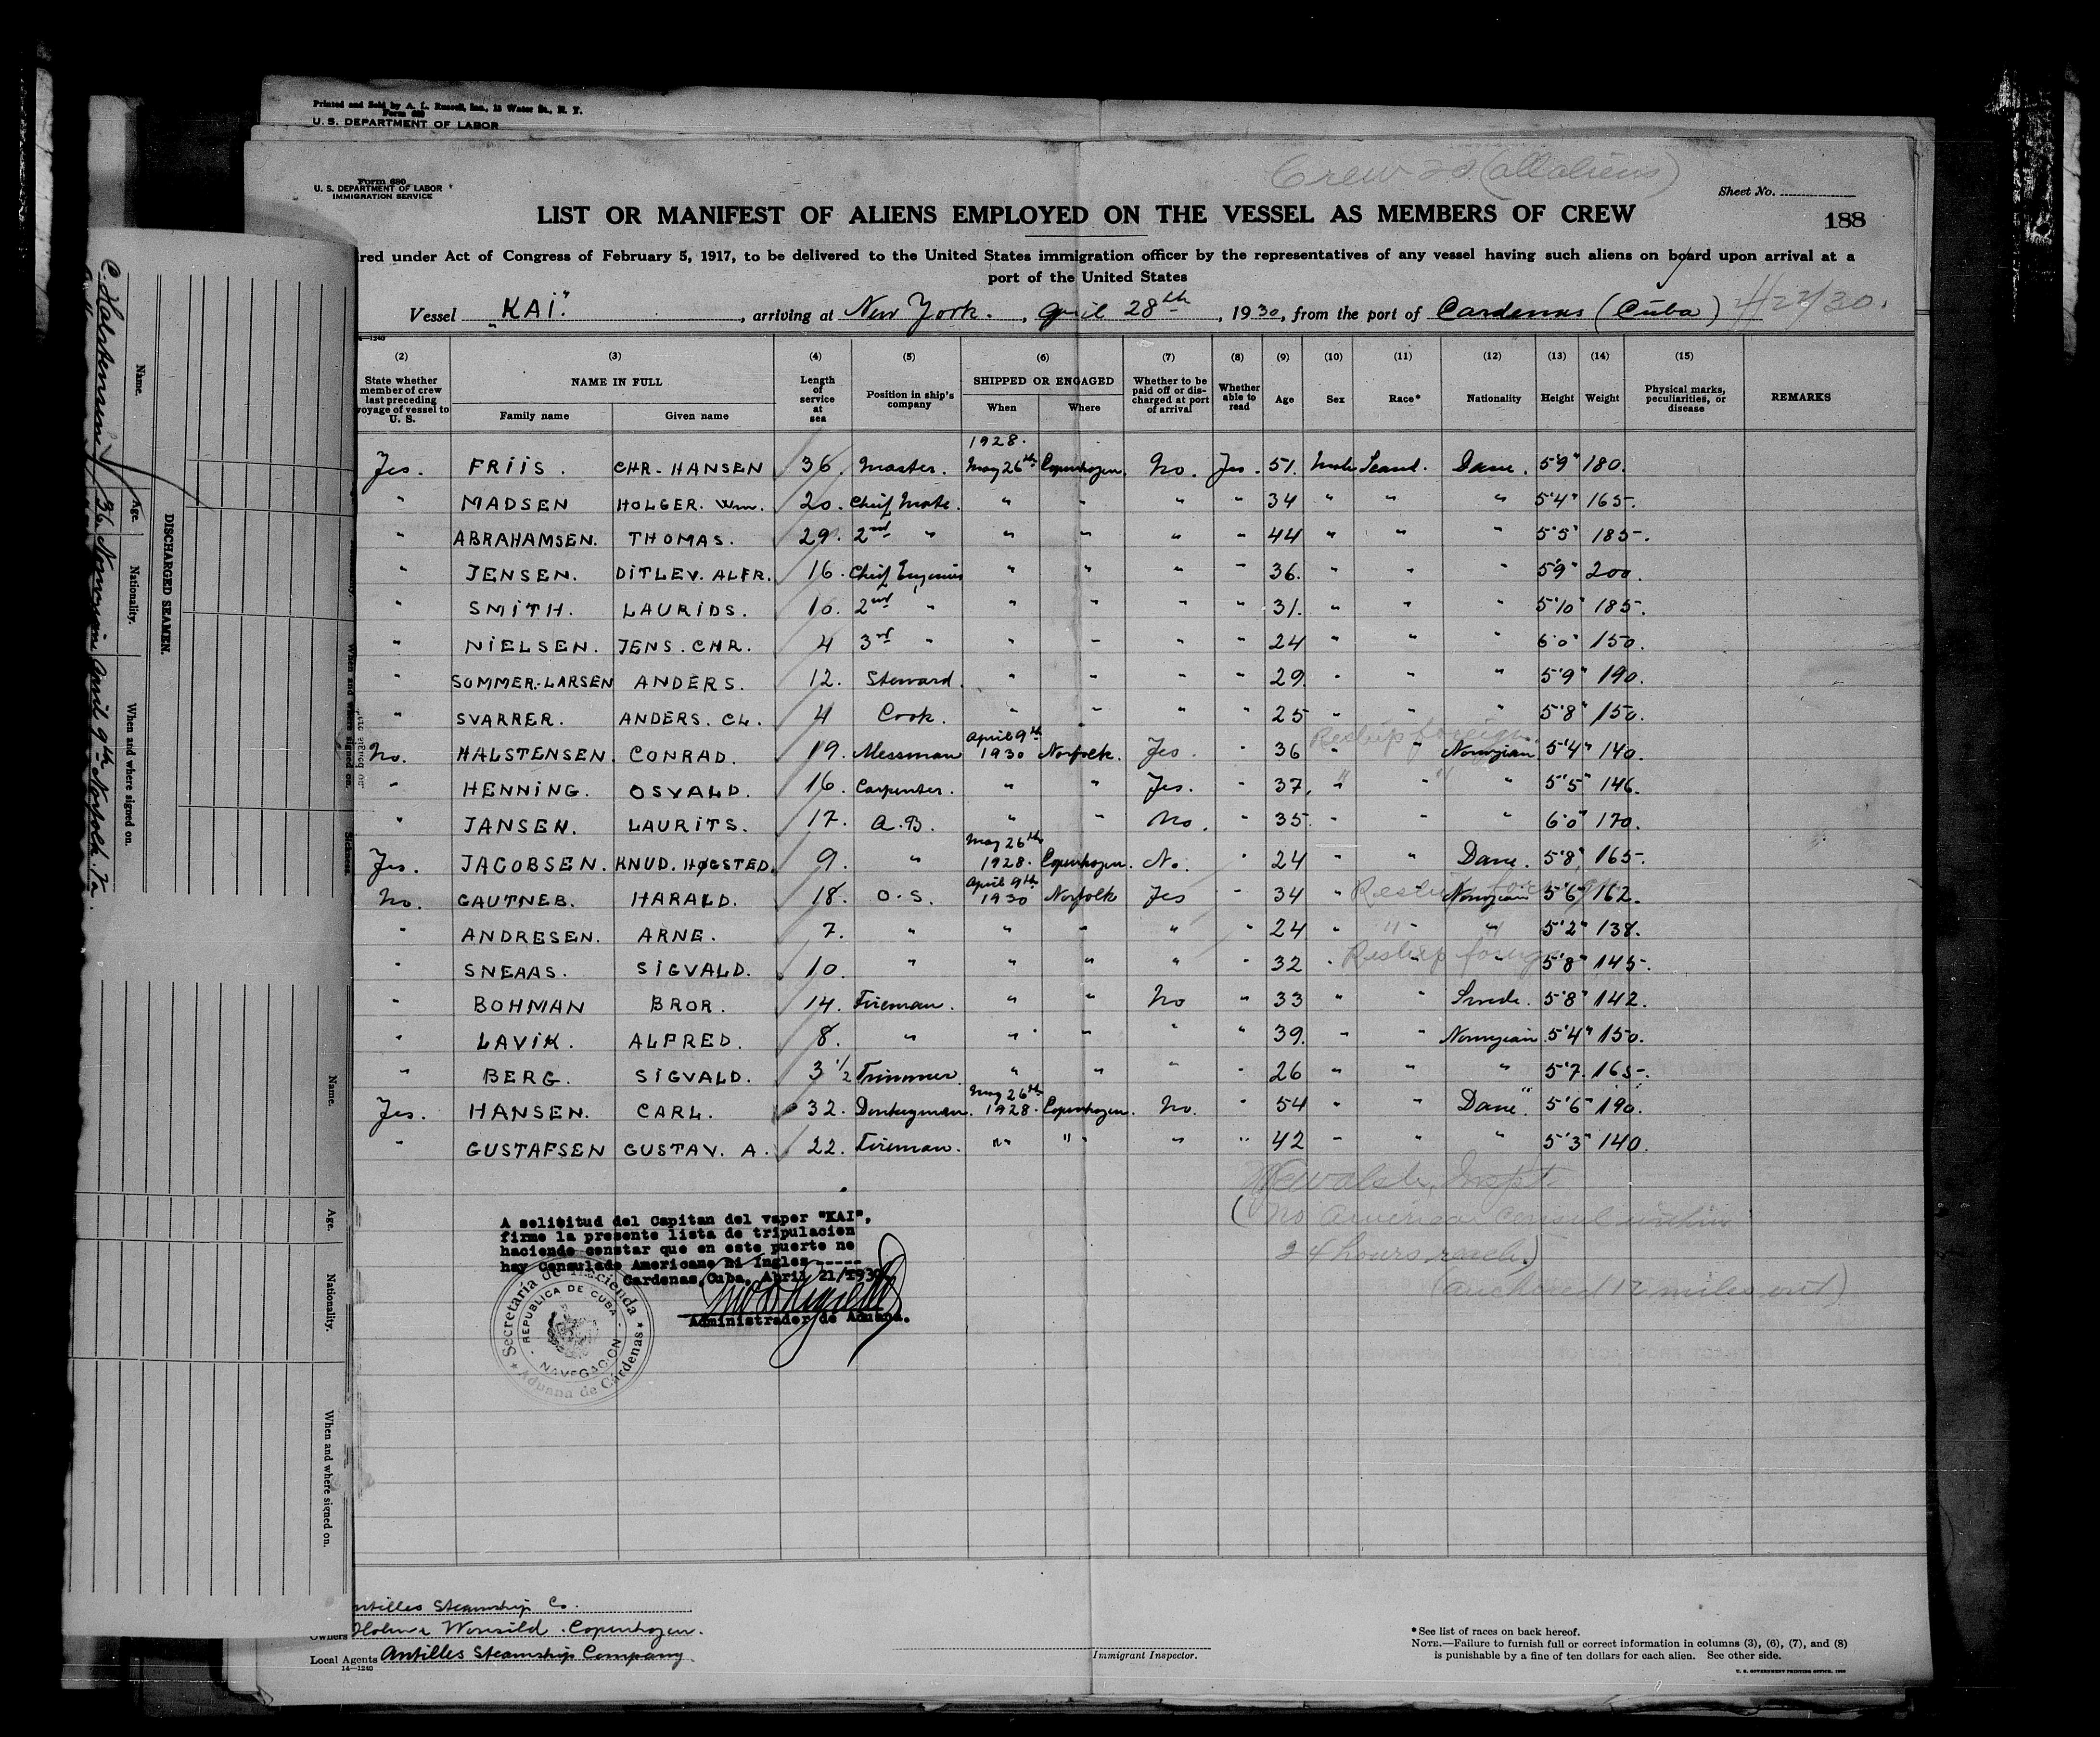 Printed and Sold by A. L. Russell, Inc., 12 Water St., N. Y.
Form 680
U. S. DEPARTMENT OF LABOR
Form 680
U. S. DEPARTMENT OF LABOR
IMMIGRATION SERVICE
Crew 20 (all aliens)
Sheet No.
188
LIST OR MANIFEST OF ALIENS EMPLOYED ON THE VESSEL AS MEMBERS OF CREW
red under Act of Congress of February 5, 1917, to be delivered to the United States immigration officer by the representatives of any vessel having such aliens on board upon arrival at a
port of the United States
Vessel "KAI", arriving at New York., April 28th, 1930, from the port of Cardenas (Cuba) 4/22/30.
(2) (3) (4) (5) (6) (7) (8) (9) (10) (11) (12) (13) (14) (15)
State whether member of crew last preceding voyage of vessel to U. S. NAME IN FULL Family name Given name Length of service at sea Position in ship's company SHIPPED OR ENGAGED When Where Whether to be paid off or discharged at port of arrival Whether able to read Age Sex Race* Nationality Height Weight Physical marks, peculiarities, or disease REMARKS
1928.
Yes. FRIIS. CHR. HANSEN 36. Master. May 26th Copenhagen. No. Yes. 51. Male Scand. Dane. 5'9" 180.
" MADSEN HOLGER. Wm. 20. Chief Mate. " " " " 34 " " " 5'4" 165.
" ABRAHAMSEN. THOMAS. 29. 2nd " " " " " 44 " " " 5'5" 185.
" JENSEN. DITLEV. ALFR. 16. Chief Engenier " " " " 36. " " " 5'9" 200.
" SMITH. LAURIDS. 10. 2nd " " " " " 31. " " " 5'10" 185.
" NIELSEN. JENS. CHR. 4 3rd " " " " " 24 " " " 6'0" 150.
" SOMMER-LARSEN ANDERS. 12. Steward. " " " " 29 " " " 5'9" 190.
" SVARRER. ANDERS. CL. 4 Cook. " " " " 25 " " " 5'8" 150.
Reship foreign
No. HALSTENSEN. CONRAD. 19. Messman April 9th 1930 Norfolk. Yes. " 36 " " Norwegian 5'4" 140.
" HENNING. OSVALD. 16. Carpenter. " " Yes. " 37. " " " 5'5" 146.
" JANSEN. LAURITS. 17. A.B. " " No. " 35. " " " 6'0" 170.
Yes. JACOBSEN. KNUD. HØGSTED. 9. " May 26th 1928. Copenhagen. No. " 24 " " Dane. 5'8" 165.
Reship foreign
No. GAUTNEB. HARALD. 18. O.S. April 9th 1930 Norfolk Yes " 34 " " Norwegian 5'6" 162.
" ANDRESEN. ARNE. 7. " " " " " 24 " " " 5'2" 138.
Reship foreign
" SNEAAS. SIGVALD. 10. " " " " " 32 " " " 5'8" 145.
" BOHMAN BROR. 14. Fireman. " " No " 33 " " Swede. 5'8" 142.
" LAVIK. ALFRED. 8. " " " " " 39. " " Norwegian. 5'4" 150.
" BERG. SIGVALD. 3 1/2 Trimmer. " " " " 26 " " " 5'7. 165.
Yes. HANSEN. CARL. 32. Donkeyman. May 26th 1928. Copenhagen. No. " 54 " " Dane. 5'6" 190.
" GUSTAFSEN GUSTAV. A. 22. Fireman. " " " " 42 " " " 5'3" 140.
Inspt.
(no American Consul within
24 hours reach.)
(anchored 12 miles out)
A solicitud del Capitan del vapor "KAI",
firmo la presente lista de tripulacion
haciendo constar que en este puerto no
hay Consulado Americano ni Ingles-----
Cardenas, Cuba, April 21/1930
Administrador de Aduana.
Secretaría de Hacienda
REPUBLICA DE CUBA
NAVEGACION
Aduana de Cárdenas
ntilles Steamship Co.
Owners Holm & Wonsild. Copenhagen.
Local Agents Antilles Steamship Company.
14—1240
Immigrant Inspector.
*See list of races on back hereof.
NOTE.—Failure to furnish full or correct information in columns (3), (6), (7), and (8)
is punishable by a fine of ten dollars for each alien. See other side.
U. S. GOVERNMENT PRINTING OFFICE
DISCHARGED SEAMEN.
Name. Age. Nationality. When and where signed on.
C. Halstensen 36 Norwegian April 9th Norfolk. Va.
Name. Age. Nationality. When and where signed on.
When and where signed on.
Sickness.